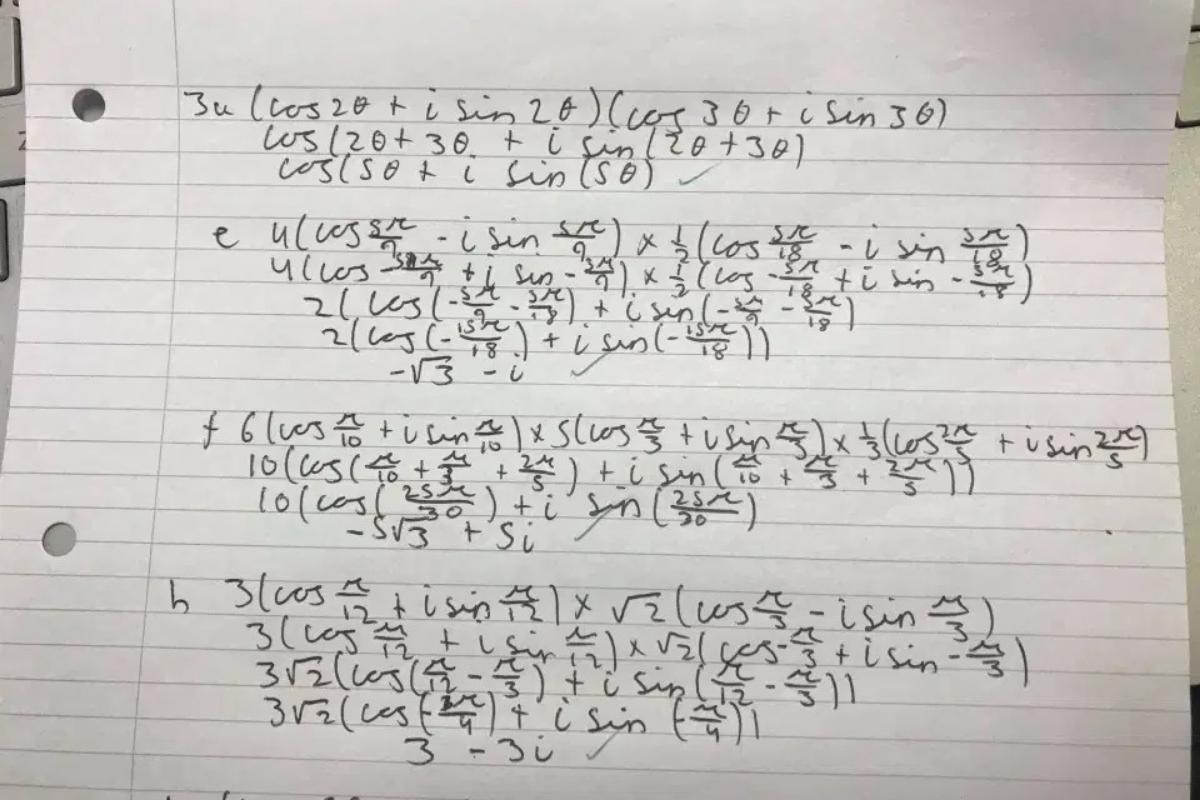 3a (cos 2θ + i sin 2θ)(cos 3θ + i sin 3θ)
cos(2θ + 3θ + i sin(2θ + 3θ)
cos(5θ + i sin (5θ) ✓
e 4(cos 5π/9 - i sin 5π/9) × 1/2 (cos 5π/18 - i sin 5π/18)
4(cos -5π/9 + i sin -5π/9) × 1/2 (cos -5π/18 + i sin -5π/18)
2(cos(-5π/9 - 5π/18) + i sin(-5π/9 - 5π/18)
2(cos(-15π/18) + i sin(-15π/18))
-√3 - i ✓
f 6(cos π/10 + i sin π/10) × 5(cos π/3 + i sin π/3) × 1/3 (cos 2π/5 + i sin 2π/5)
10(cos(π/10 + π/3 + 2π/5) + i sin(π/10 + π/3 + 2π/5))
10(cos(25π/30) + i sin(25π/30)
-5√3 + 5i ✓
h 3(cos π/12 + i sin π/12) × √2 (cos π/3 - i sin π/3)
3(cos π/12 + i sin π/12) × √2(cos -π/3 + i sin -π/3)
3√2(cos(π/12 - π/3) + i sin(π/12 - π/3))
3√2(cos(-π/4) + i sin (-π/4))
3 - 3i ✓